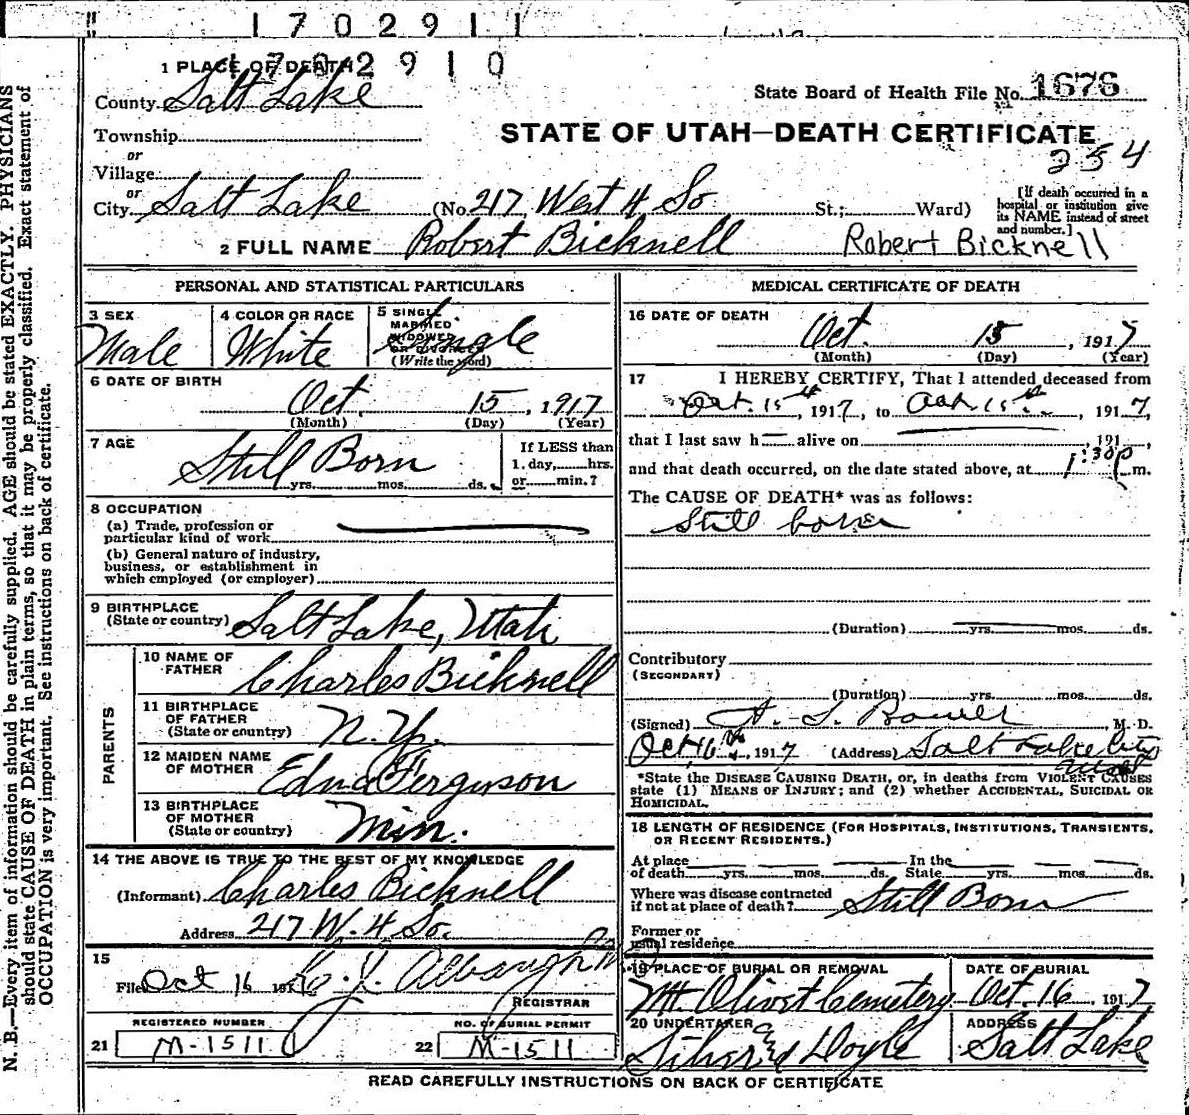 1702911
1702910
1 PLACE OF DEATH
County Salt Lake
State Board of Health File No. 1676
Township
or
Village
or
City Salt Lake (No. 217 West 4 So St.; Ward)
STATE OF UTAH—DEATH CERTIFICATE
254
[If death occurred in a
hospital or institution give
its NAME instead of street
and number.]
2 FULL NAME Robert Bicknell Robert Bicknell
PERSONAL AND STATISTICAL PARTICULARS
3 SEX
Male
4 COLOR OR RACE
White
5 SINGLE
MARRIED
WIDOWED
OR DIVORCED
(Write the word)
Single
6 DATE OF BIRTH
Oct. 15, 1917
(Month) (Day) (Year)
7 AGE
Still Born
yrs. mos. ds.
If LESS than
1 day, hrs.
or min.?
8 OCCUPATION
(a) Trade, profession or
particular kind of work
(b) General nature of industry,
business, or establishment in
which employed (or employer)
9 BIRTHPLACE
(State or country) Salt Lake, Utah
PARENTS
10 NAME OF
FATHER Charles Bicknell
11 BIRTHPLACE
OF FATHER
(State or country) N.Y.
12 MAIDEN NAME
OF MOTHER Edna Ferguson
13 BIRTHPLACE
OF MOTHER
(State or country) Minn.
14 THE ABOVE IS TRUE TO THE BEST OF MY KNOWLEDGE
(Informant) Charles Bicknell
Address 217 W. 4 So.
15
Filed Oct 16 191
REGISTRAR
REGISTERED NUMBER
21 M-1511
NO. OF BURIAL PERMIT
22 M-1511
MEDICAL CERTIFICATE OF DEATH
16 DATE OF DEATH
Oct. 15, 1917
(Month) (Day) (Year)
17 I HEREBY CERTIFY, That I attended deceased from
Oct. 15th, 1917, to Oct. 15th, 1917,
that I last saw h alive on , 191 ,
and that death occurred, on the date stated above, at 1:30 P m.
The CAUSE OF DEATH* was as follows:
Still born
(Duration) yrs. mos. ds.
Contributory
(SECONDARY)
(Duration) yrs. mos. ds.
(Signed) M. D.
Oct 16th, 1917 (Address) Salt Lake City
Utah
*State the DISEASE CAUSING DEATH, or, in deaths from VIOLENT CAUSES
state (1) MEANS OF INJURY; and (2) whether ACCIDENTAL, SUICIDAL OR
HOMICIDAL.
18 LENGTH OF RESIDENCE (FOR HOSPITALS, INSTITUTIONS, TRANSIENTS,
OR RECENT RESIDENTS.)
At place In the
of death yrs. mos. ds. State yrs. mos. ds.
Where was disease contracted
if not at place of death? Still Born
Former or
usual residence
19 PLACE OF BURIAL OR REMOVAL
Mt. Olivet Cemetery
DATE OF BURIAL
Oct. 16 1917
20 UNDERTAKER
Doyle
ADDRESS
Salt Lake
READ CAREFULLY INSTRUCTIONS ON BACK OF CERTIFICATE
N. B.—Every item of information should be carefully supplied. AGE should be stated EXACTLY. PHYSICIANS
should state CAUSE OF DEATH in plain terms, so that it may be properly classified. Exact statement of
OCCUPATION is very important. See instructions on back of certificate.